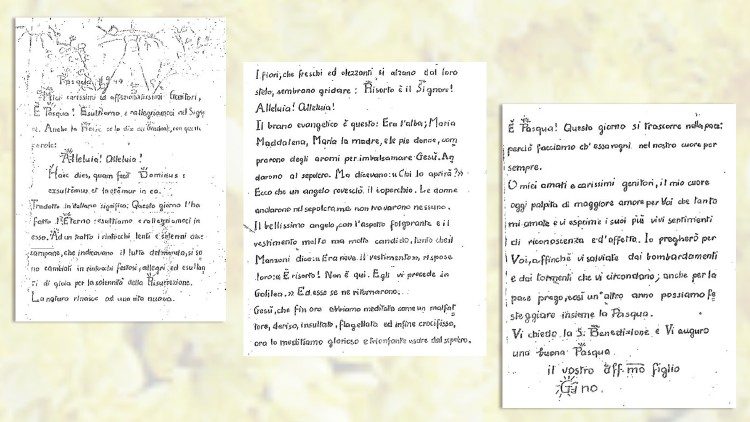 Pasqua, 1944
Miei carissimi ed affezionatissimi Genitori,
È Pasqua! Esultiamo, e rallegriamoci nel Signo
re. Anche la Chiesa ce lo dice col Graduale, con queste
parole:
Alleluia! Alleluia!
Haec dies, quam fecit Dominus:
exsultemus et laetemur in ea.
Tradotto in italiano significa: Questo giorno l'ha
fatto l'Eterno: esultiamo e rallegriamoci in
esso. Ad un tratto i rintocchi lenti e solenni delle
campane, che indicavano il lutto della morte, si so
no cambiati in rintocchi festosi, allegri, ed esultan
ti di gioia per la solennità della Risurrezione.
La natura rinasce ad una vita nuova.
I fiori, che freschi ed olezzanti si alzano dal loro
stelo, sembrano gridare: Risorto è il Signore!
Alleluia! Alleluia!
Il brano evangelico è questo: Era l'alba; Maria
Maddalena, Maria la madre, e le pie donne, com
prarono degli aromi per imbalsamare Gesù. An
darono al sepolcro. Ma dicevano: «Chi lo aprirà?»
Ecco che un angelo rovesciò il coperchio. Le donne
andarono nel sepolcro, ma non trovarono nessuno.
Il bellissimo angelo, con l'aspetto folgorante e il
vestimento molto ma molto candido, tanto che il
Manzoni dice: «Era neve il vestimento», rispose
loro: «È risorto! Non è qui. Egli vi precede in
Galilea.» Ed esse se ne ritornarono.
Gesù, che fin ora abbiamo meditato come un malfat
tore, deriso, insultato, flagellato ed infine crocifisso,
ora lo meditiamo glorioso e trionfante uscire dal sepolcro.
È Pasqua! Questo giorno si trascorre nella pace:
perciò facciamo ch'essa regni nel nostro cuore per
sempre.
O miei amati e carissimi genitori, il mio cuore
oggi palpita di maggiore amore per Voi che tanto
mi amate e vi esprime i suoi più vivi sentimenti
di riconoscenza e d'affetto. Io pregherò per
Voi, affinchè vi salviate dai bombardamenti
e dai tormenti che vi circondano; anche per la
pace prego, così un'altro anno possiamo fe
steggiare insieme la Pasqua.
Vi chiedo la S. Benedizione e Vi auguro
una buona Pasqua.
il vostro aff.mo figlio
Gino.